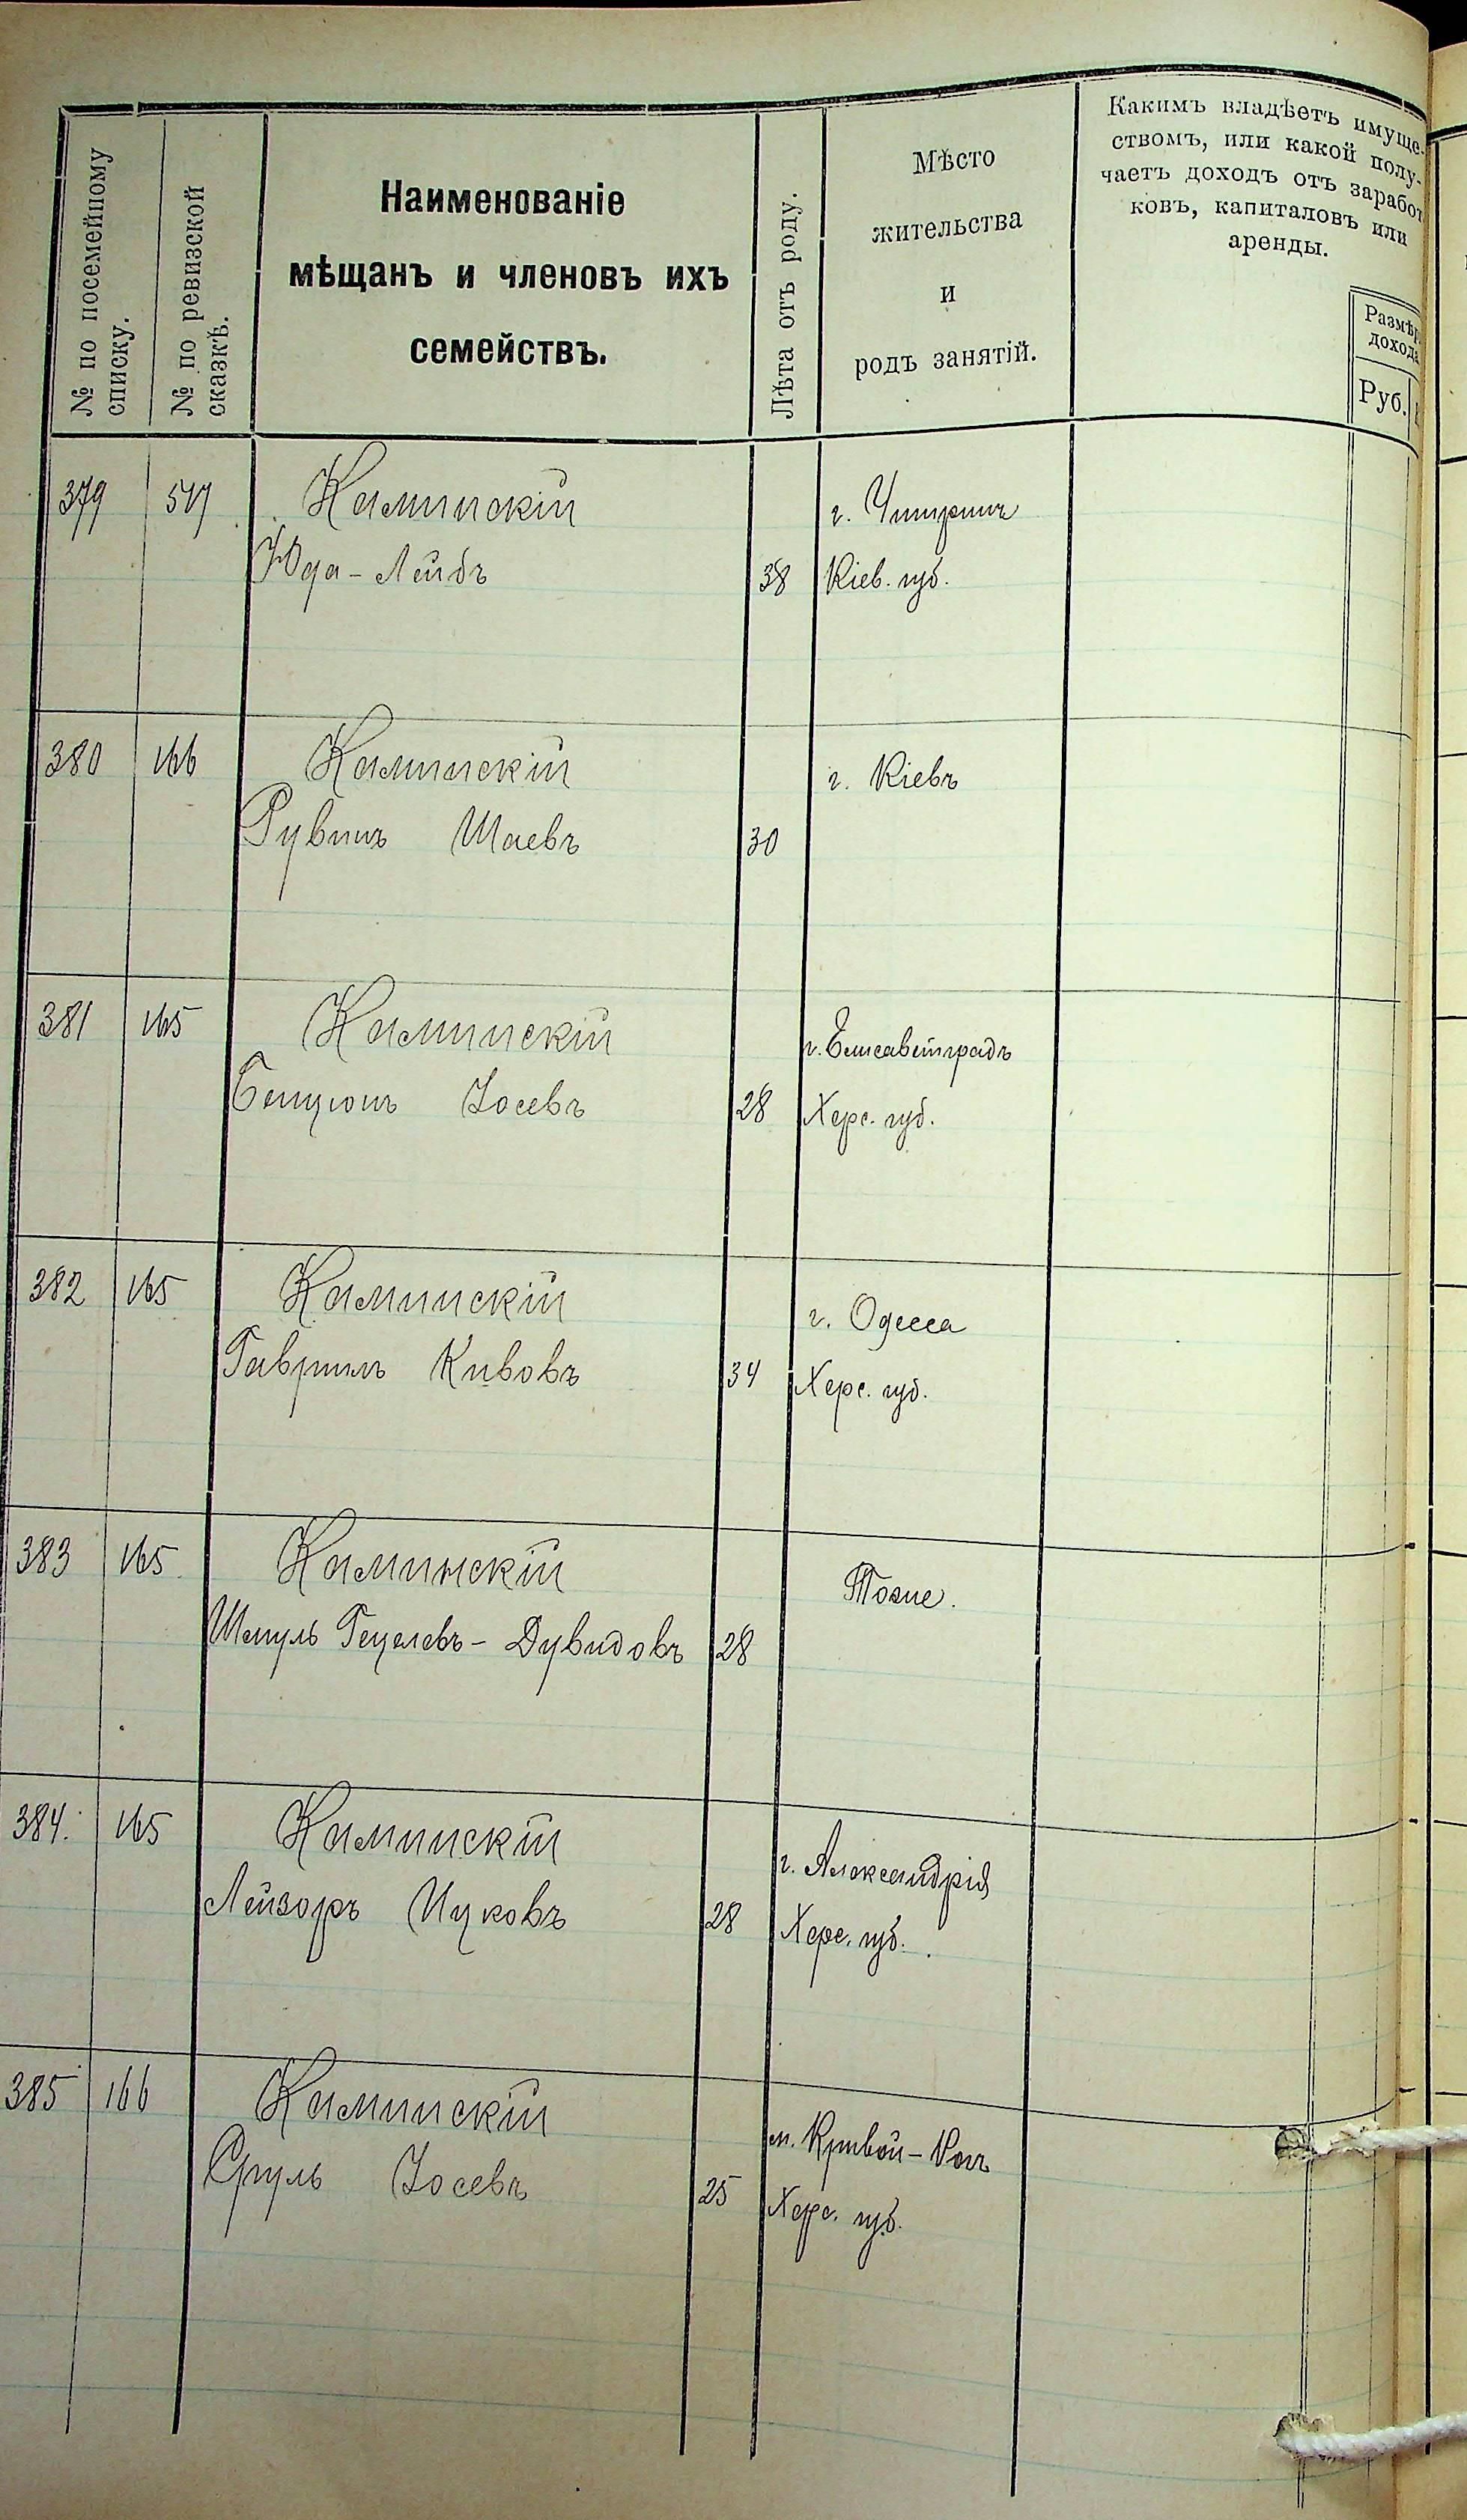 № по посемейному
списку.
№ по ревизской
сказкѣ.
Наименованіе
мѣщанъ и членовъ ихъ
семействъ.
Лѣта отъ роду.
Мѣсто
жительства
и
родъ занятій.
Какимъ владѣетъ имуще-
ствомъ, или какой полу-
чаетъ доходъ отъ заработ
ковъ, капиталовъ или
аренды.
Размѣр
дохода
Руб.
379 Каминскій г. Чигиринъ
Юда-Лейбъ 38 Кіев. губ.
380 166 Каминскій г. Кіевъ
Рувинъ Шаевъ 30
381 165 Каминскій г. Елисаветградъ
Бенціонъ Іосевъ 28 Херс. губ.
382 165 Каминскій г. Одесса
Гавриилъ Кивовъ 34 Херс. губ.
383 165 Каминскій Тоже.
Шмуль Гецелевъ-Дувидовъ 28
384. 165 Каминскій г. Александрія
Лейзоръ Ицковъ 28 Херс. губ.
385 166 Каминскій м. Кривой-Рогъ
Сруль Іосевъ 25 Херс. губ.